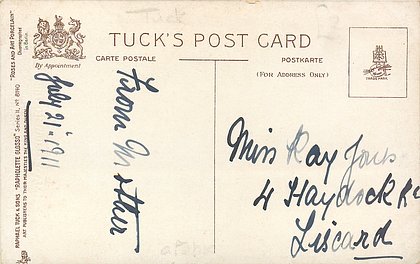 Tuck
TUCK'S POST CARD
CARTE POSTALE
POSTKARTE
(FOR ADDRESS ONLY)
By Appointment
TRADE MARK
"ROSES AND ART PORCELAIN"
RAPHAEL TUCK & SONS' "RAPHOLETTE GLOSSO" Series II, No 8190
ART PUBLISHERS TO THEIR MAJESTIES THE KING AND QUEEN
July 21st 1911
From Mother
Miss Ray Jones
4 Haydock Rd
Liscard